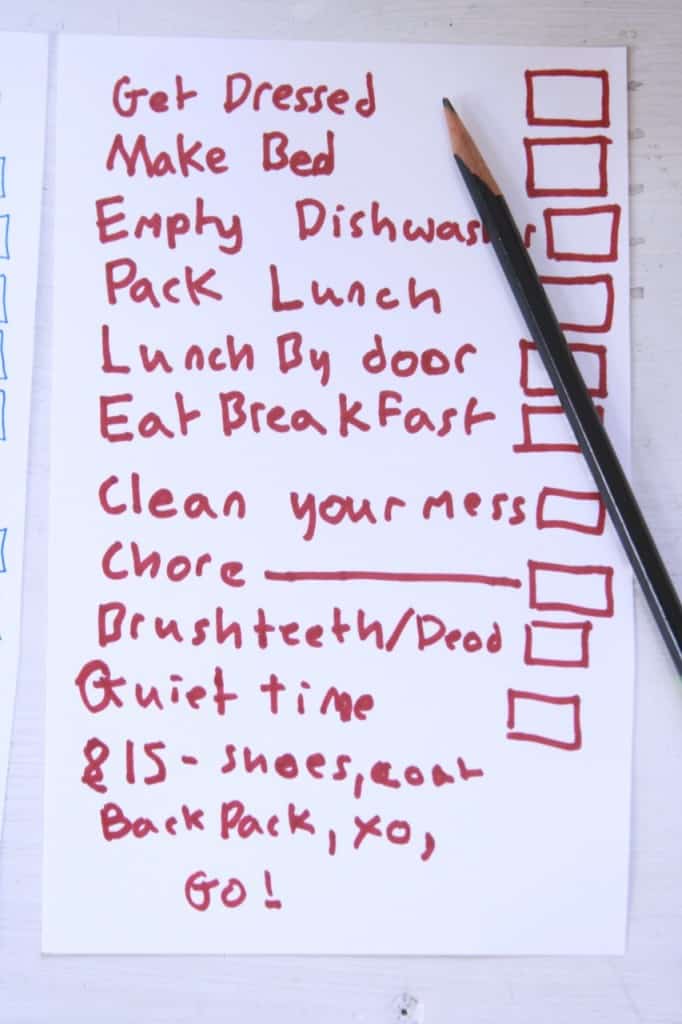 Get Dressed
Make Bed
Empty Dishwasher
Pack Lunch
Lunch By door
Eat Breakfast
Clean your mess
Chore
Brush teeth/Deod
Quiet time
815- shoes, coat
BackPack, xo,
Go!